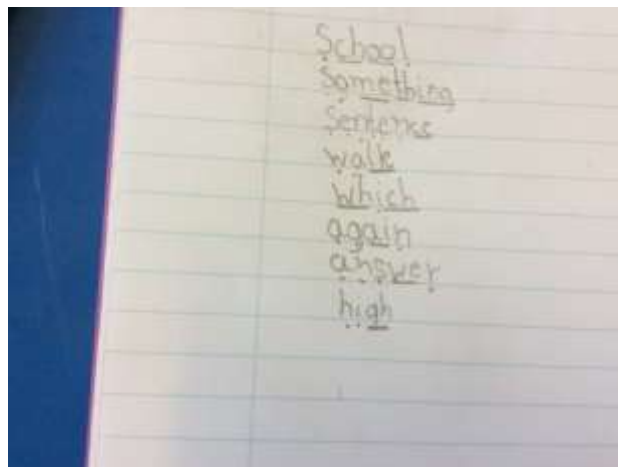 School
Something
Sentence
walk
which
again
answer
high